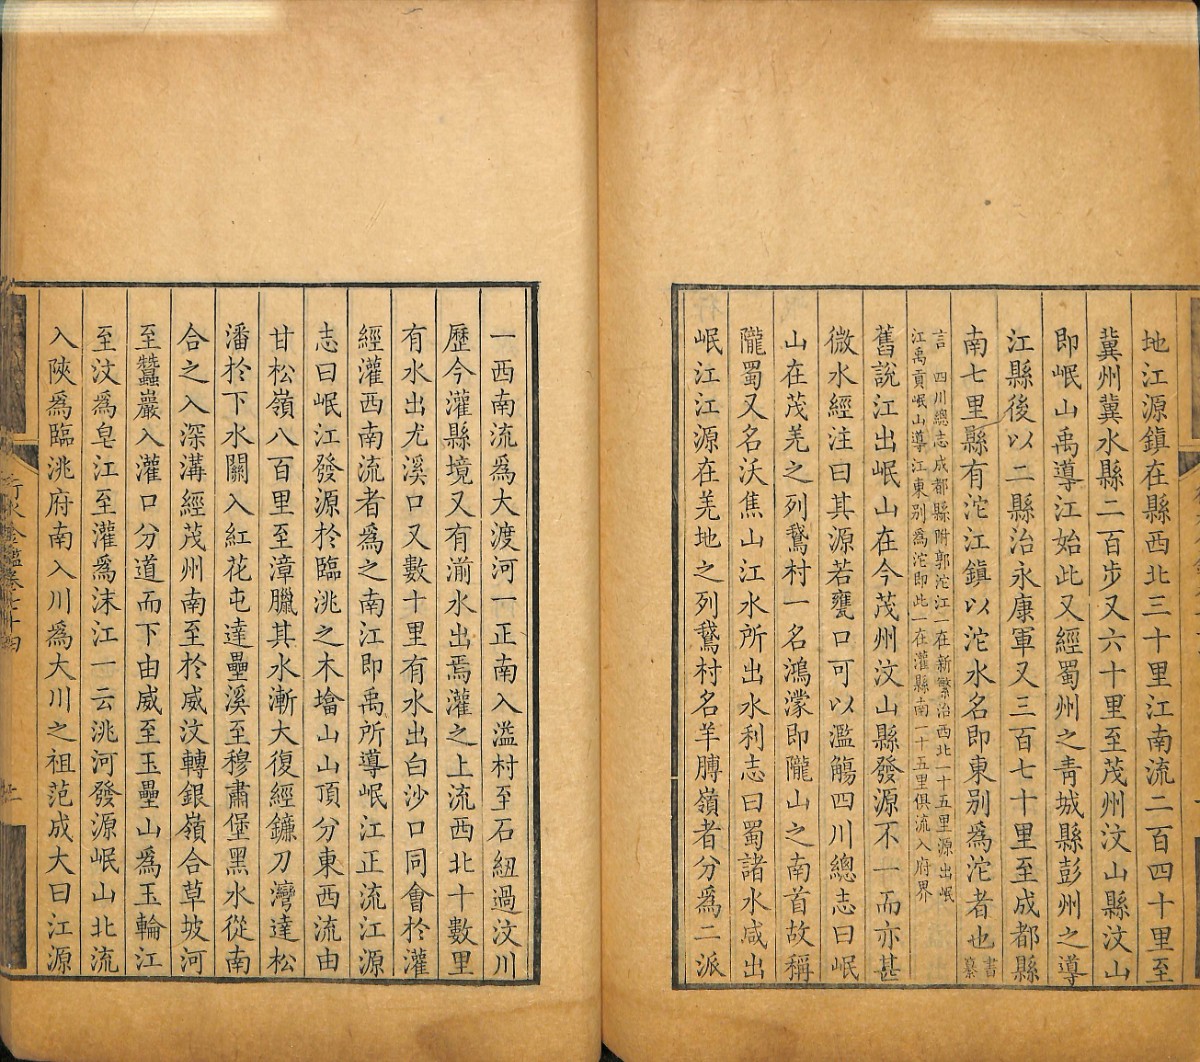 地江源鎮在縣西北三十里江南流二百四十里至
冀州冀水縣二百步又六十里至茂州汶山縣汶山
即岷山禹導江始此又經蜀州之青城縣彭州之導
江縣後以二縣治永康軍又三百七十里至成都縣
南七里縣有沱江鎮以沱水名即東别為沱者也書纂
言 四川總志成都縣附郭沱江一在新繁治西北一十五里源出岷
江禹貢岷山導江東别為沱即此一在灌縣南一十五里俱流入府界
舊說江出岷山在今茂州汶山縣發源不一而亦甚
微水經注曰其源若甕口可以濫觴四川總志曰岷
山在茂羌之列鵞村一名鴻濛即隴山之南首故稱
隴蜀又名沃焦山江水所出水利志曰蜀諸水咸出
岷江江源在羌地之列鵞村名羊膊嶺者分為二派
一西南流為大渡河一正南入溢村至石紐過汶川
歷今灌縣境又有湔水出焉灌之上流西北十數里
有水出尤溪口又數十里有水出白沙口同會於灌
經灌西南流者為之南江即禹所導岷江正流江源
志曰岷江發源於臨洮之木㙮山山頂分東西流由
甘松嶺八百里至漳臘其水漸大復經鐮刀灣達松
潘於下水關入紅花屯達疊溪至穆肅堡黑水從南
合之入深溝經茂州南至於威汶轉銀嶺合草坡河
至蠶巖入灌口分道而下由威至玉壘山為玉輪江
至汶為皂江至灌為沫江一云洮河發源岷山北流
入陝為臨洮府南入川為大川之祖范成大曰江源
行水金鑑卷七十四